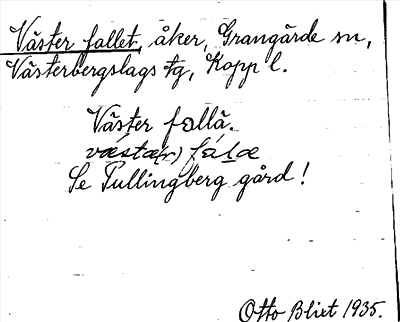 Väster fallet, åker, Grangärde sn,
Västerbergslags tg, Kopp l.
Väster fallä.
væsta(r) falæ
Se Pullingberg gård!
Otto Blixt 1935.